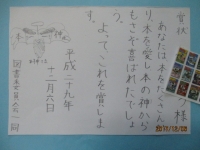 賞状
様
あなたは本をたくさん
り本を愛し本の神から
もさぞ喜ばれたでしょ
う。
よってこれを賞しま
す。
平成二十九年
十二月六日
図書委員会一同
本の神